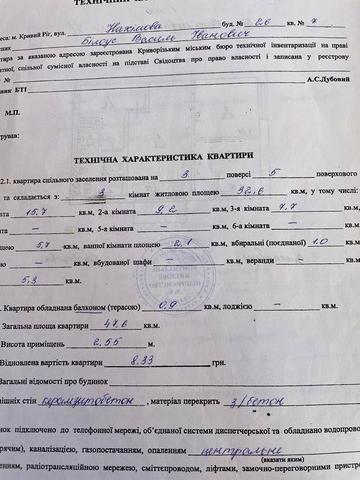 ТЕХНІЧНИЙ
м. Кривий Ріг, вул. Нахімова буд. № 26 кв. № 7
Білоус Василь Іванович
за вказаною адресою зареєстрована Криворізьким міським бюро технічної інвентаризації на праві
спільної сумісної власності на підставі Свідоцтва про право власності і записана у реєстрову
№
БТІ А.С.Дубовий
М.П.
ТЕХНІЧНА ХАРАКТЕРИСТИКА КВАРТИРИ
2.1. квартира спільного заселення розташована на 3 поверсі 5 поверхового
та складається з: 3 кімнат житловою площею 32,6 кв.м, у тому числі:
15,7 кв.м, 2-а кімната 9,2 кв.м, 3-я кімната 7,7 кв.м,
– кв.м, 5-а кімната – кв.м, 6-а кімната – кв.м,
5,7 кв.м, ванної кімнати площею 2,1 кв.м, вбиральні (поєднаної) 1,0 кв.м,
– кв.м, вбудованої шафи – кв.м, веранди – кв.м,
5,3 кв.м.
Квартира обладнана балконом (терасою) 0,9 кв.м, лоджією – кв.м.
Загальна площа квартири 47,6 кв.м.
Висота приміщень 2,55 м.
Відновлена вартість квартири 833 грн.
Загальні відомості про будинок
стін керамзитобетон, матеріал перекрить з/бетон
підключено до телефонної мережі, об'єднаної системи диспетчерської та обладнано
каналізацією, газопостачанням, опаленням центральне
(вказати яким)
радіотрансляційною мережею, сміттєпроводом, ліфтами, замочно-переговорними